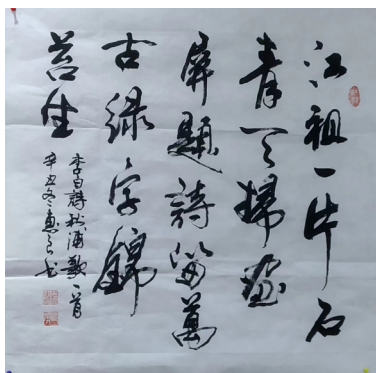 江祖一片石
青天掃画
屏題詩留萬
古綠字錦
苔生
李白詩秋浦歌一首
辛丑冬惠良书